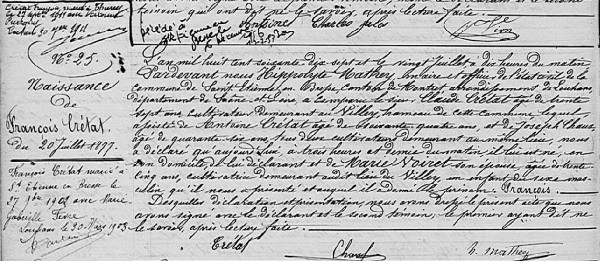 Crétat François
30 1911
N° 25.
Naissance
de
François Crétat
du 20 Juillet 1877.
François Crétat marié à
St Etienne en Bresse le
1902 avec Marie
Gabrielle
Louhans le 30 Mars 1903
après lecture faite.
L'an mil huit cent soixante dix sept et le vingt Juillet à dix heures du matin
Pardevant nous Hippolyte Mathey, Maire et officier de l'état civil de la
commune de Saint Etienne en Bresse, Canton de Montret arrondissement de Louhans,
département de Saône et Loire, a comparu le sieur Claude Crétat âgé de trente
sept ans, cultivateur demeurant au Villey, hameau de cette commune, lequel
assisté de Antoine Crétat âgé de soixante quatre ans, et de Joseph Chaux
âgé de quarante six ans, tous deux cultivateurs demeurant au même lieu, nous
a déclaré que aujourd'hui à trois heures et demie du matin, il lui est né en
son domicile, de lui déclarant et de Marie Voiret son épouse, âgée de trente
cinq ans, cultivatrice demeurant audit lieu du Villey, un enfant du sexe mas-
culin qu'il nous a présenté et auquel il a donné le prénom François.
Desquelles déclaration et présentation, nous avons dressé le présent acte que nous
avons signé avec le déclarant et le second témoin, le premier ayant dit ne
le savoir, après lecture faite.
Crétat Chaux h. Mathey